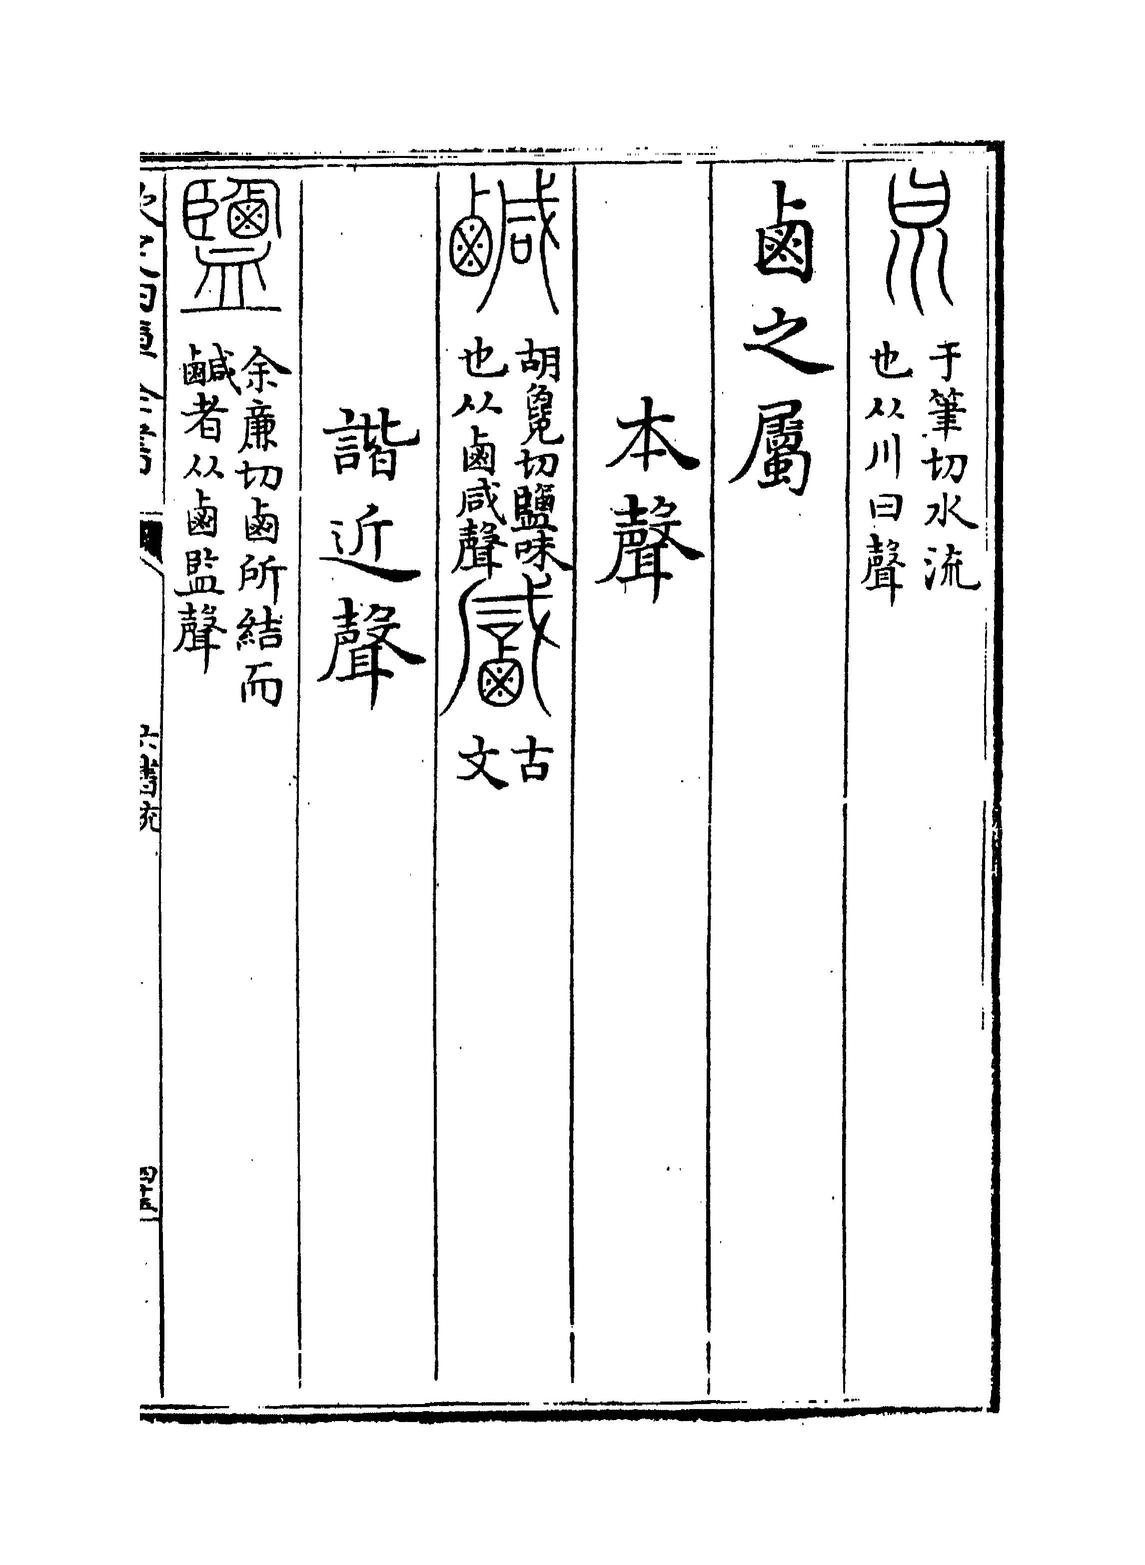 于筆切水流
也从川曰聲
鹵之屬
本聲
鹹
胡毚切鹽味
也从鹵咸聲
古
文
諧近聲
鹽
余廉切鹵所結而
鹹者从鹵監聲
欽定四庫全書
六書統